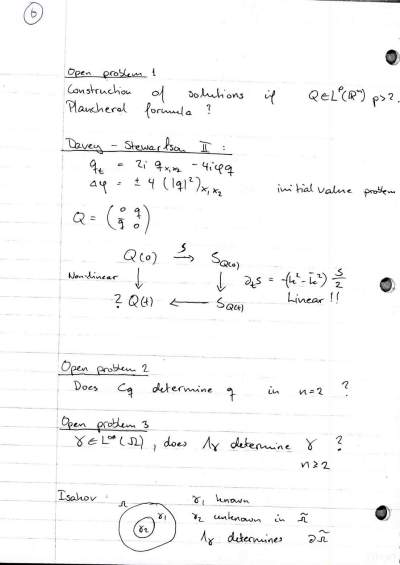 6
Open problem 1
Construction of solutions if Q ∈ L^p(ℝ^n) p>2.
Plancherel formula ?
Davey - Stewartson II :
q_t = 2i q_{x_1 x_2} - 4iφq
Δφ = ± 4 (|q|²)_{x_1 x_2} initial value problem
Q = (0 q; q̄ 0)
Q(0) →^S S_{Q(0)}
Non-linear ↓ ↓ ∂_t S = -(k² - k̄²) S/2
? Q(t) ← S_{Q(t)} Linear !!
Open problem 2
Does C_q determine q in n=2 ?
Open problem 3
γ ∈ L^∞(Ω), does Λ_γ determine γ ?
n ≥ 2
Isakov Ω γ_1 known
γ_1 γ_2 γ_2 unknown in Ω̃
Λ_γ determines ∂Ω̃